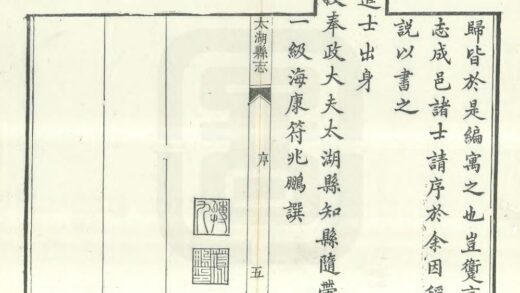 歸皆於是編寓之也豈
志成邑諸士請序於余因
說以書之
進士出身
奉政大夫太湖縣知縣隨帶
一級海康符兆鵬譔
太湖縣志
序
五